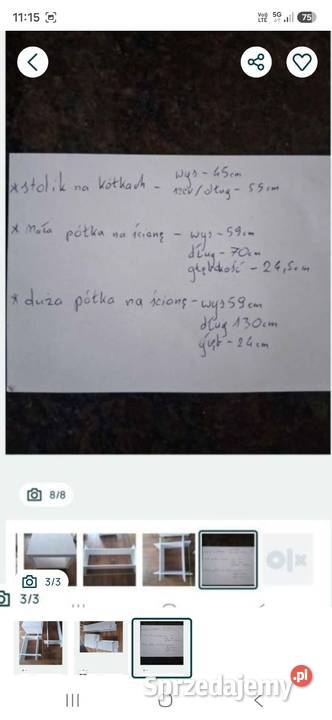 11:15
VoO LTE 5G 75
* stolik na kółkach - wys - 45cm
szer/dług - 55cm
* mała półka na ścianę - wys - 59cm
dług - 70cm
głębokość - 24,5cm
* duża półka na ścianę - wys 59cm
dług 130cm
głęb - 24cm
8/8
3/3
3/3
Sprzedajemy.pl